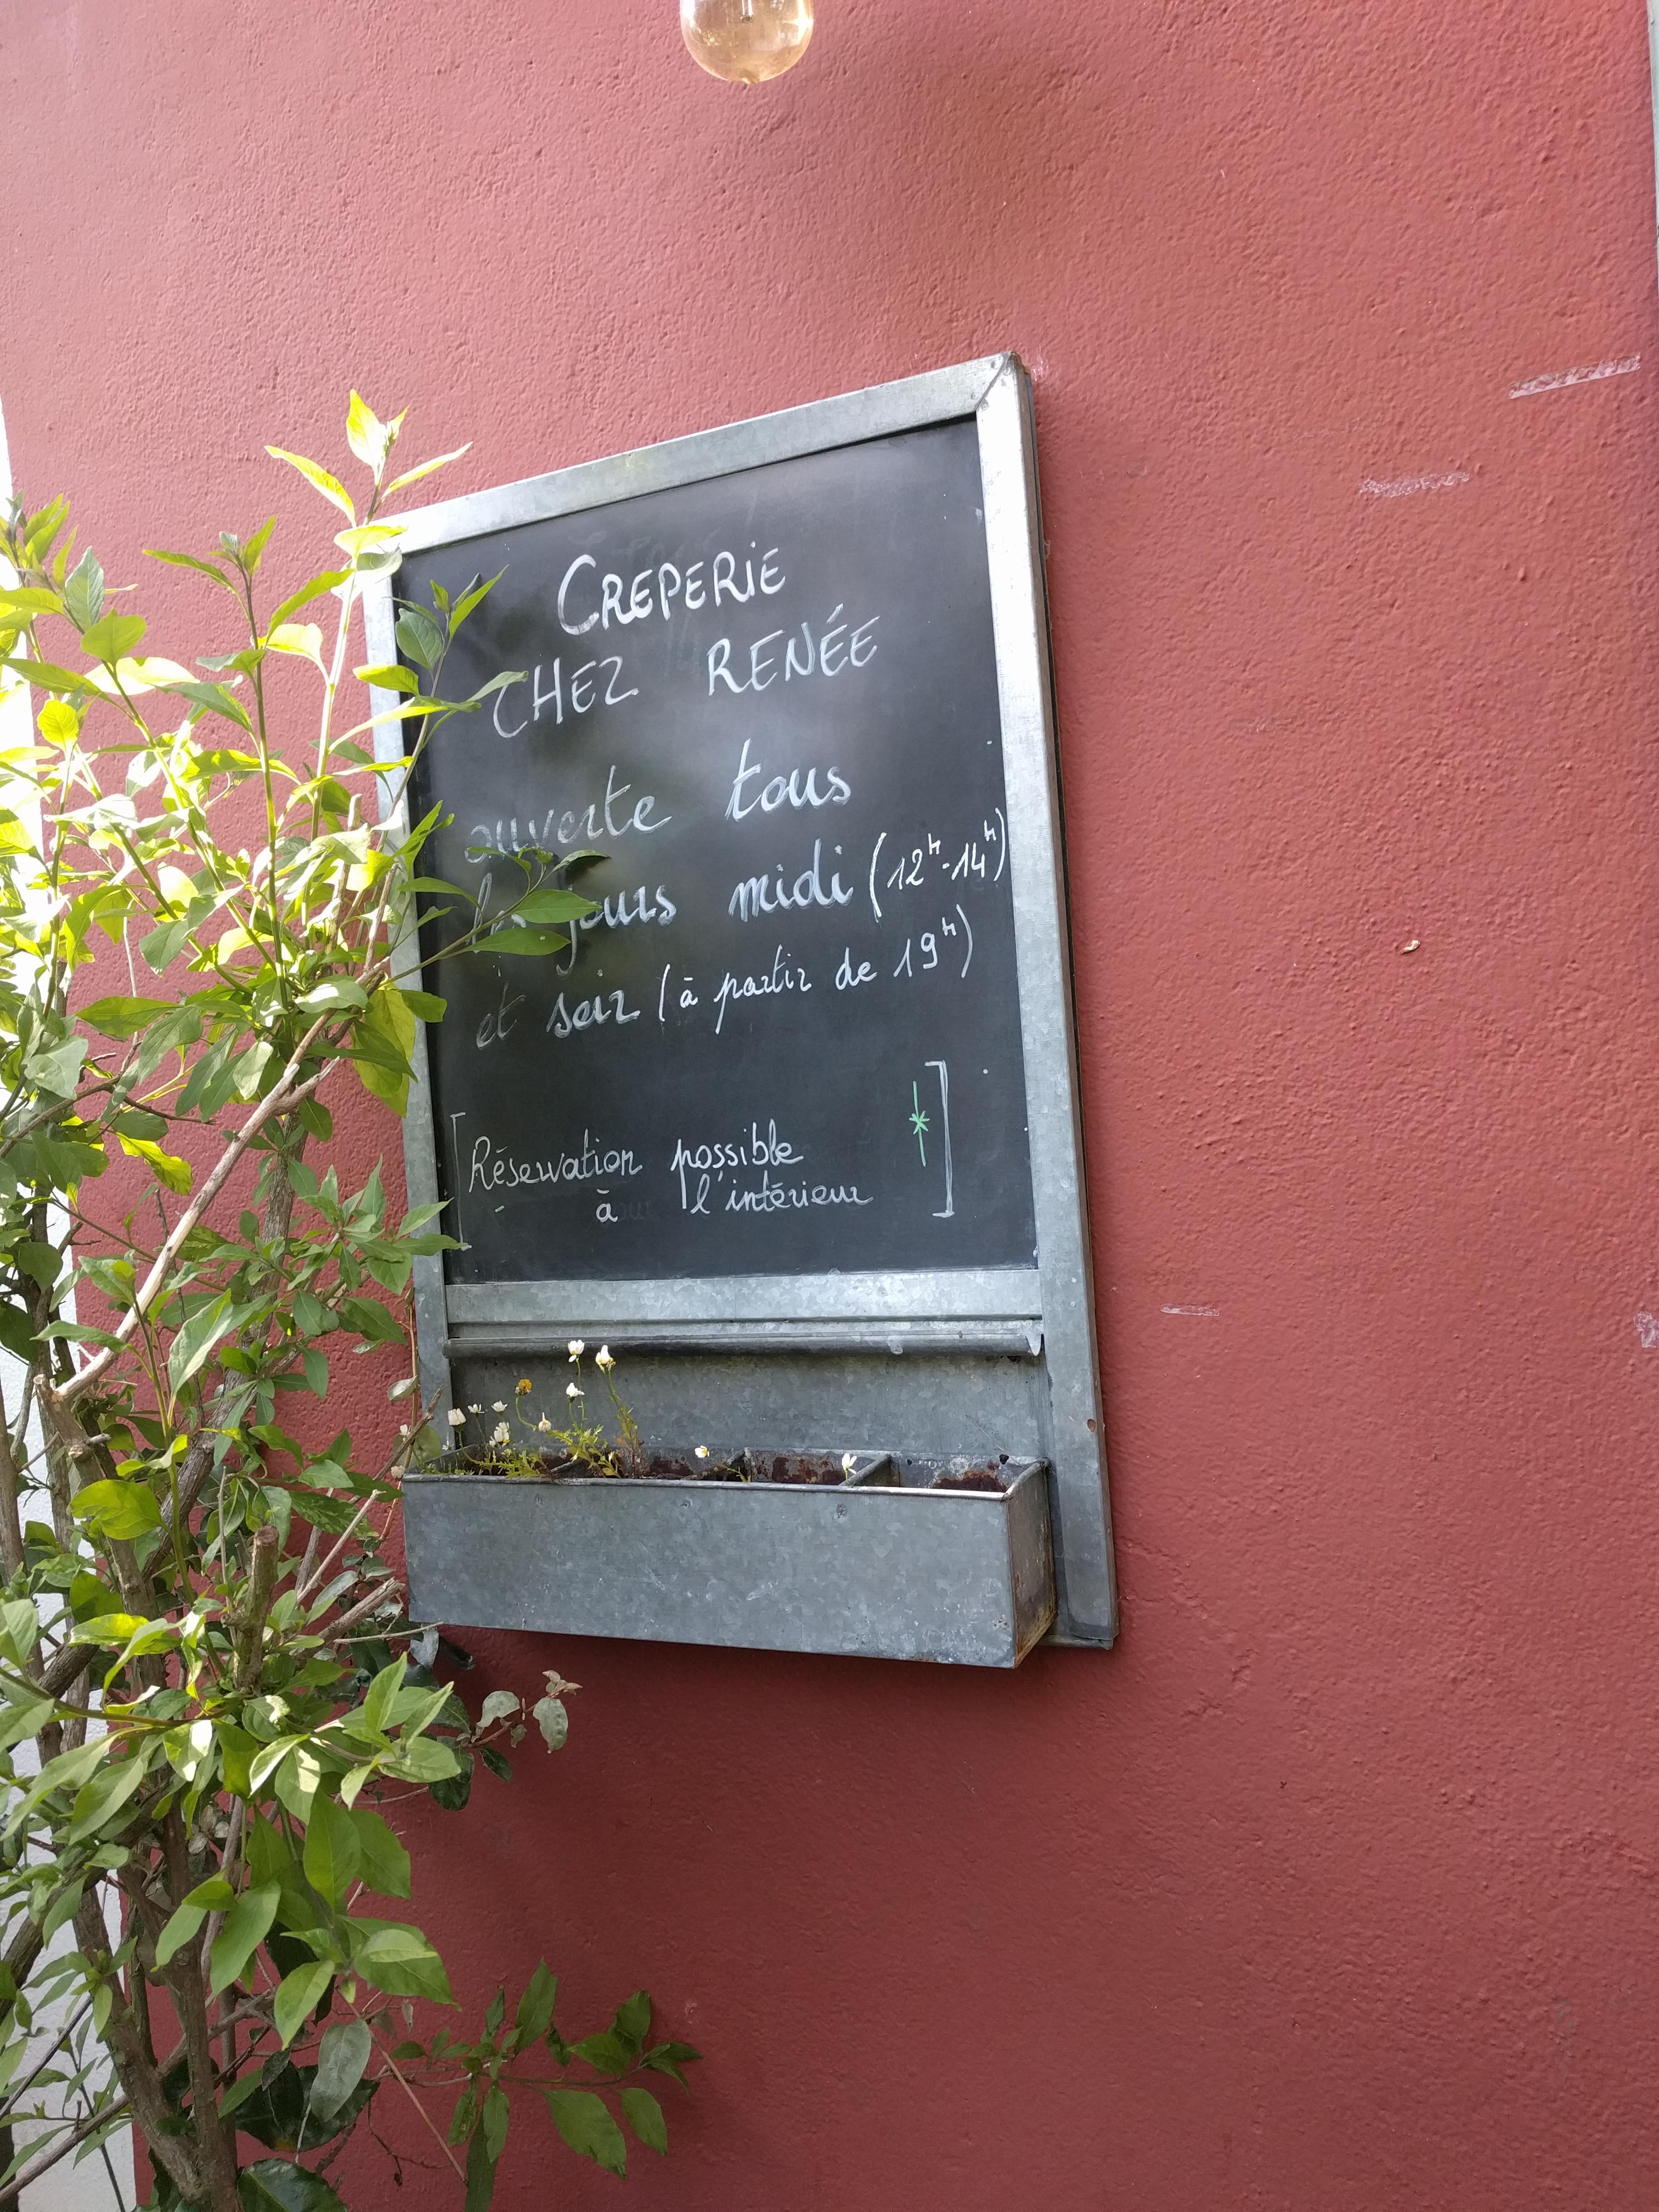 CREPERIE
CHEZ RENÉE
ouverte tous
les jours midi (12h-14h)
et soir (à partir de 19h)
[Réservation possible
à l'intérieur]